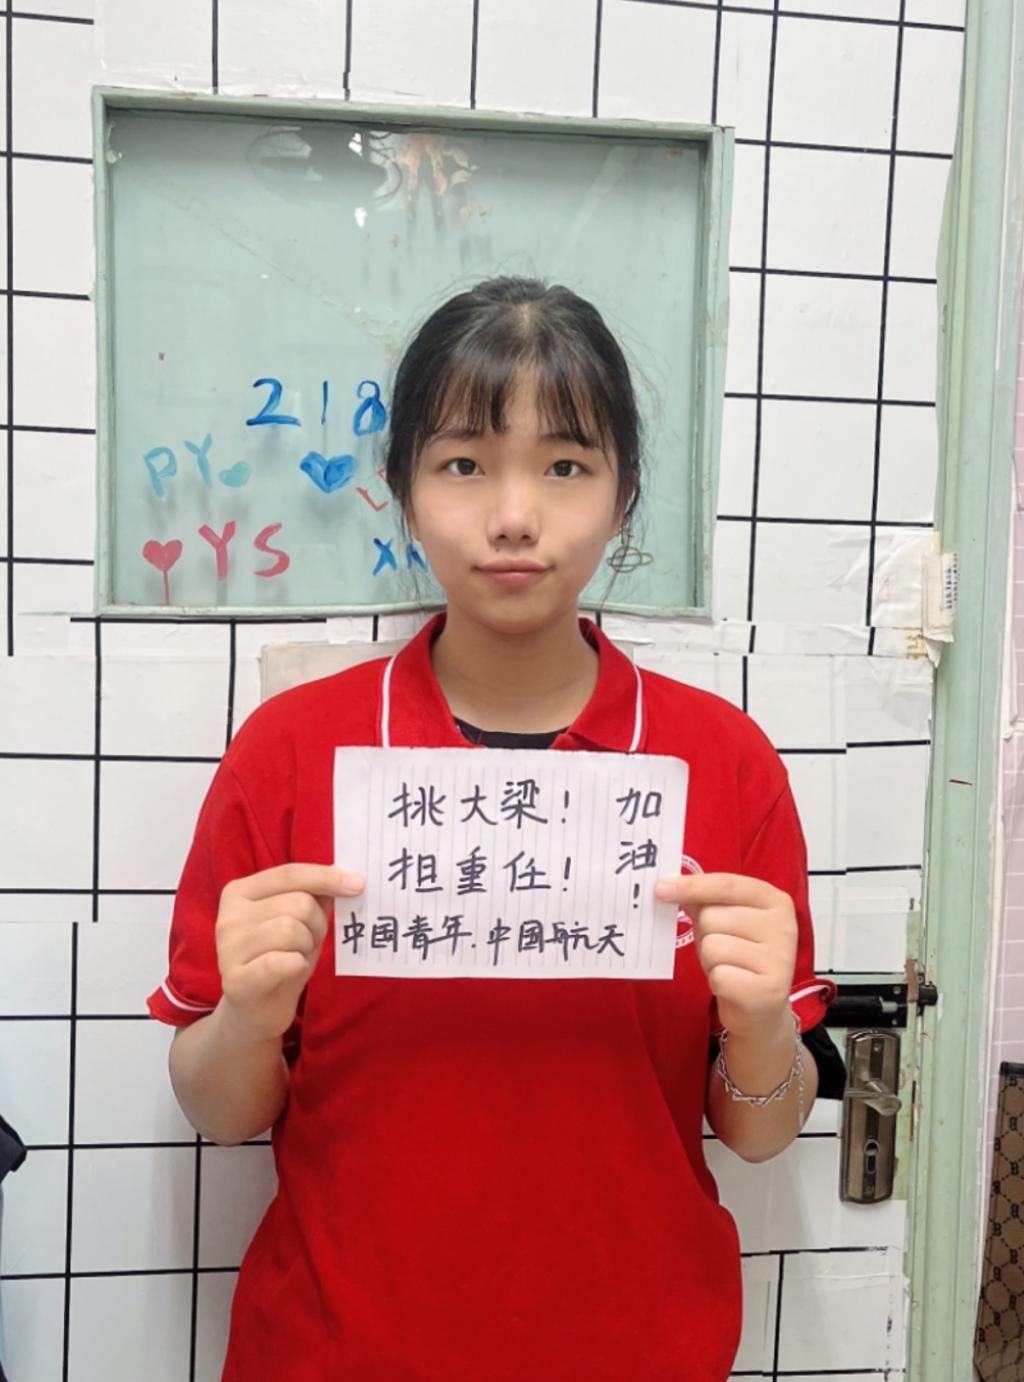 218
PY
YS
挑大梁！
担重任！
加油！
中国青年.中国航天